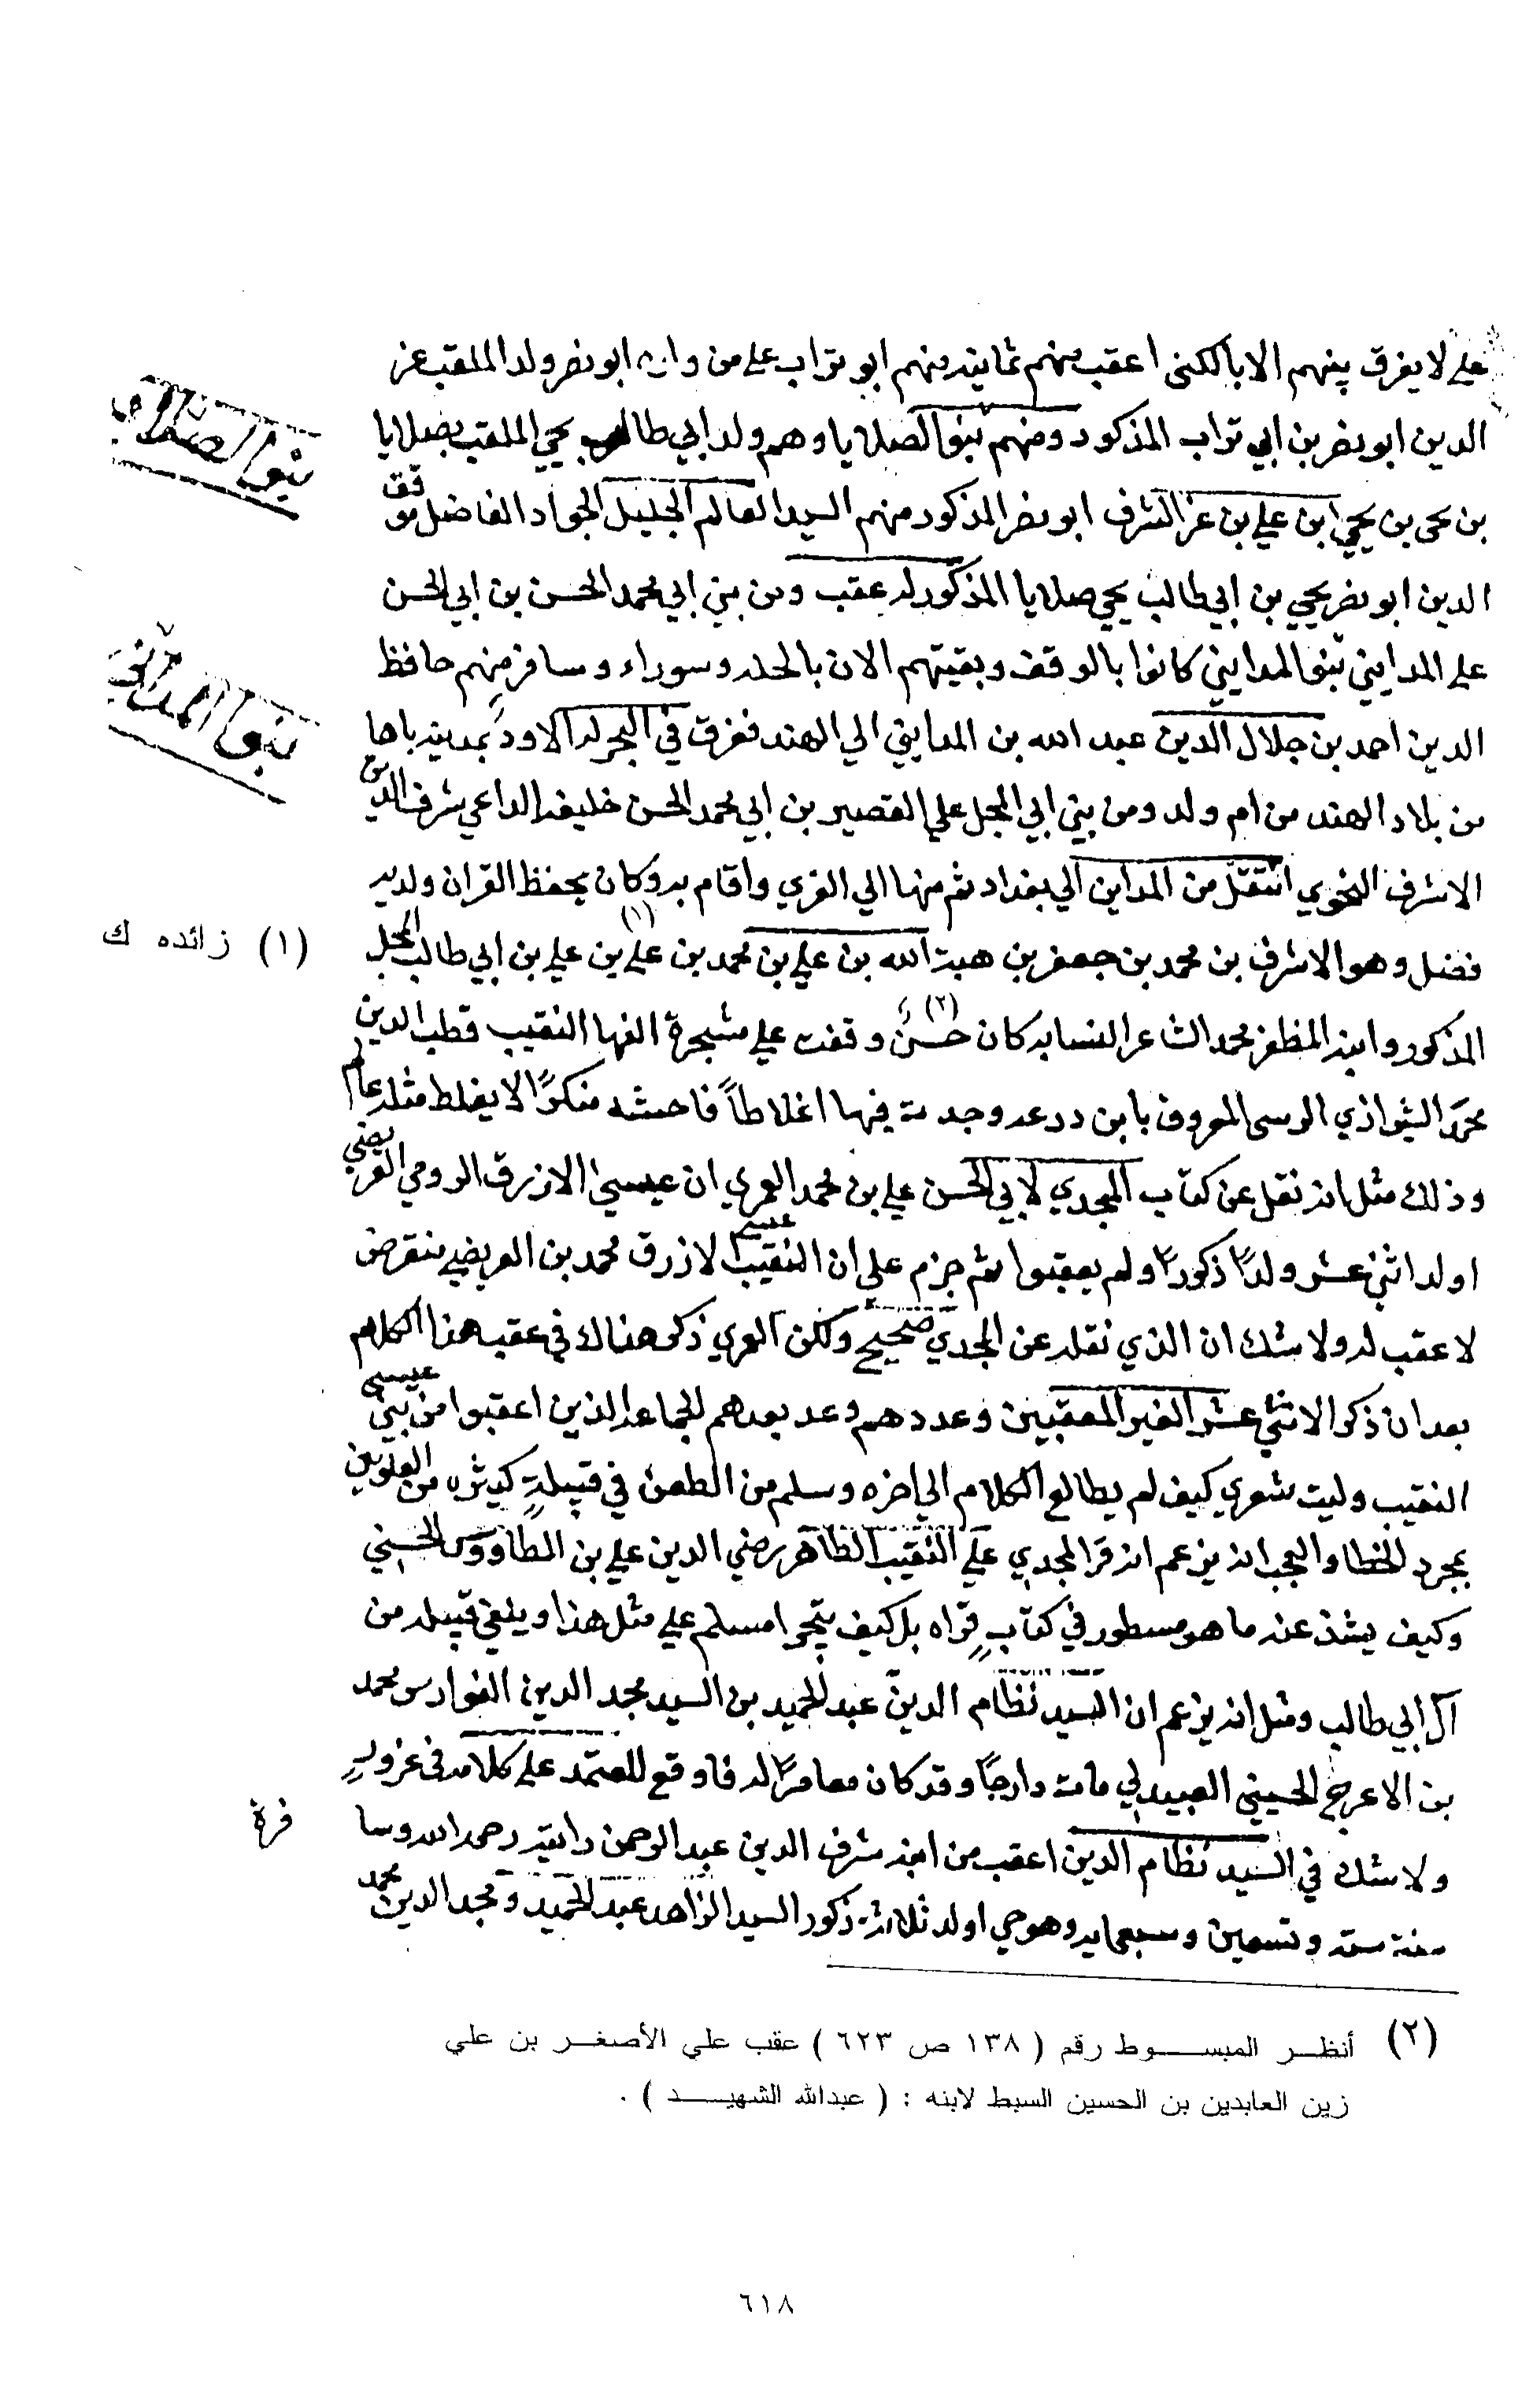 علي لا يفرق بينهم الا بالكنى اعقب منهم ثمانيه منهم ابو تراب علي من ابو نصر ولد الملقب عز
الدين ابو نصر بن ابي تراب المذكور ومنهم بنوا الصلايا وهم ولد ابي طالب يحيى الملقب بصلايا
بن يحيى بن يحيى ابن علي بن عز الشرف ابو نصر المذكور منهم السيد العالم الجليل الجواد الفاضل موفق
الدين ابو نصر يحيى بن ابي طالب يحيى صلايا المذكور له عقب ومن بني ابي محمد الحسن بن ابي الحسن
علي المدايني بنوا المدايني كانوا بالوقف وبقيتهم الان بالحله وسوراء وسافر منهم حافظ
الدين احمد بن جلال الدين عبد الله بن المدايني الي الهند فغرق في البحر له الاود بمدينه باها
من بلاد الهند من ام ولد ومن بني ابي المجل علي القصير بن ابي محمد الحسن خليفه الداعي شرف الدين
الاشرف النحوي انتقل من المداين الي بغداد ثم منها الي الغري واقام به وكان يحفظ القران ولديه
فضل وهو الاشرف بن محمد بن جعفر بن هبة الله بن علي بن محمد بن علي (١) بن علي بن ابي طالب المجل
المذكور وابنه المظفر محمد الشاعر النسابه كان حسن (٢) وقفت علي مشجرة الفها النقيب قطب الدين
محمد الشيرازي الرسي المعروف بابن زرعه وجدت فيها اغلاطاً فاحشه منكرًا لا يغلط مثله عالم
وذلك مثل انه نقل عن كتاب المجدي لابي الحسن علي بن محمد العمري ان عيسى الازرق الرومي العريضي
اولد اثني عشر ولدًا ذكورًا ولم يعقبوا ثم جزم علي ان النقيب عيسى الازرق محمد بن العريضي منقرض
لا عقب له ولا شك ان الذي نقله عن المجدي صحيح ولكن العمري ذكر هناك في عقب هذا الكلام
بعد ان ذكر الاثني عشر الغير المعقبين وعددهم وعد بعدهم للجماعه الذين اعقبوا من بني عيسى
النقيب وليت شعري كيف لم يطالع الكلام الي اخره وسلم من الطعن في قبيلةٍ كثيره من العلويين
بمجرد الخطا والعجب انه يزعم انه قرا المجدي علي النقيب الطاهر رضي الدين علي بن الطاووس الحسني
وكيف يشذ عنه ما هو مسطور في كتابٍ قراه بل كيف يتجرا مسلم علي مثل هذا وينفي قبيله من
آل ابي طالب ومثل انه يزعم ان السيد نظام الدين عبد الحميد بن السيد مجد الدين الفوارس محمد
بن الاعرج الحسيني العبيدلي مات دارجًا وقد كان معاصرًا له فاوقع للمعتمد علي كلامه في غرور
ولا شك في السيد نظام الدين اعقب من ابنه شرف الدين عبد الرحمن رايته رحمه الله وسا
سنة سته وتسعين وسبعمايه وهو حي اولد ثلاثه ذكور السيد الزاهد عبد الحميد ومجد الدين محمد
بنوا الصلايا
بنوا المدائني
(١) زائده ك
فرة
(٢) أنظر المبسوط رقم ( ١٣٨ ص ٦٢٣ ) عقب علي الأصغر بن علي
زين العابدين بن الحسين السبط لابنه : ( عبدالله الشهيد ) .
٦١٨